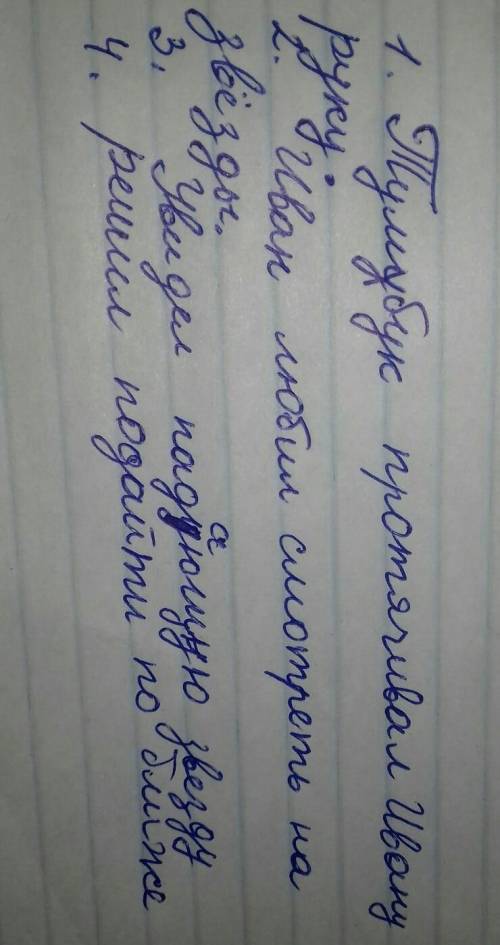 1. Тумубук протячивал Ивану
руку.
2. Иван любил смотреть на
звёзды.
3. Увидел падающую звезду
4. решил подайти по ближе